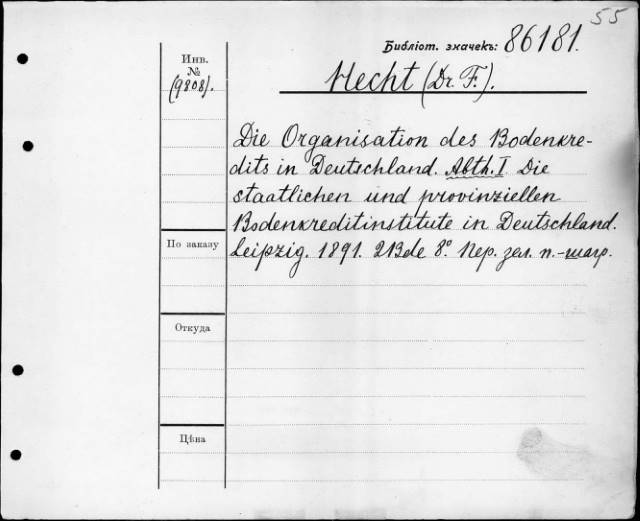 55
Библіот. значекъ: 86181.
Инв.
№
(9808).
Hecht (Dr. F.).
Die Organisation des Bodenkre-
dits in Deutschland. Abth. I. Die
staatlichen und provinziellen
Bodenkreditinstitute in Deutschland.
Leipzig. 1891. 2 Bde 8° Пер. зел. п.-шагр.
По заказу
Откуда
Цѣна